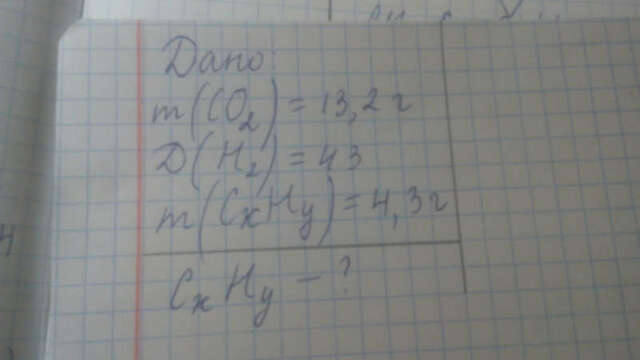 Дано:
m(CO₂) = 13,2 г
D(H₂) = 43
m(CxHy) = 4,3 г
CxHy – ?